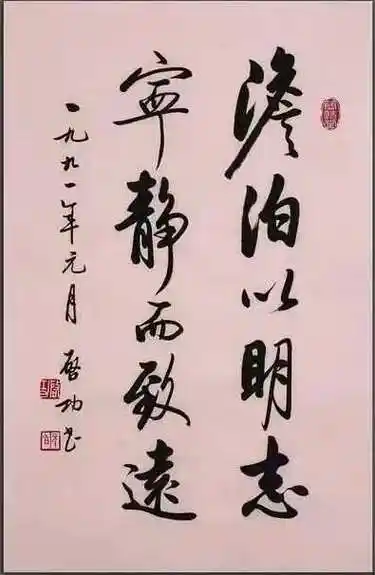 澹泊以明志
寧静而致遠
一九九一年元月 啓功书